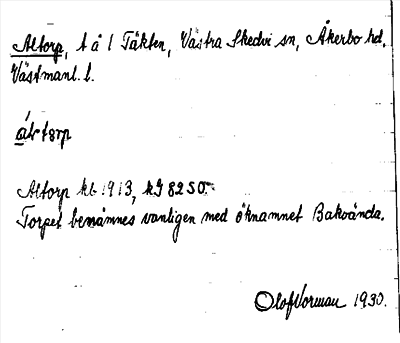 Altorp, t å 1 Täkten, Västra Skedvi sn, Åkerbo hd,
Västmanl. l.
Altorp kb 1913, kJ 8250.
Torpet benämnes vanligen med öknamnet Bakvända.
Olof Norman 1930.